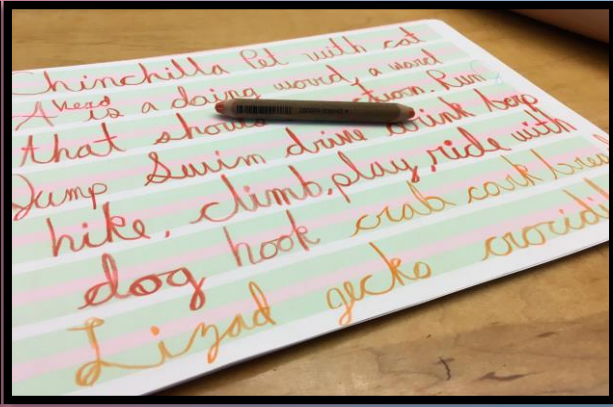 Chinchilla Pet with cat
A Verb is a doing word, a word
that shows action. Run
Jump Swim drive drink bop
hike, climb, play, ride with
dog hook crab cark
Lizad gecko crocidi